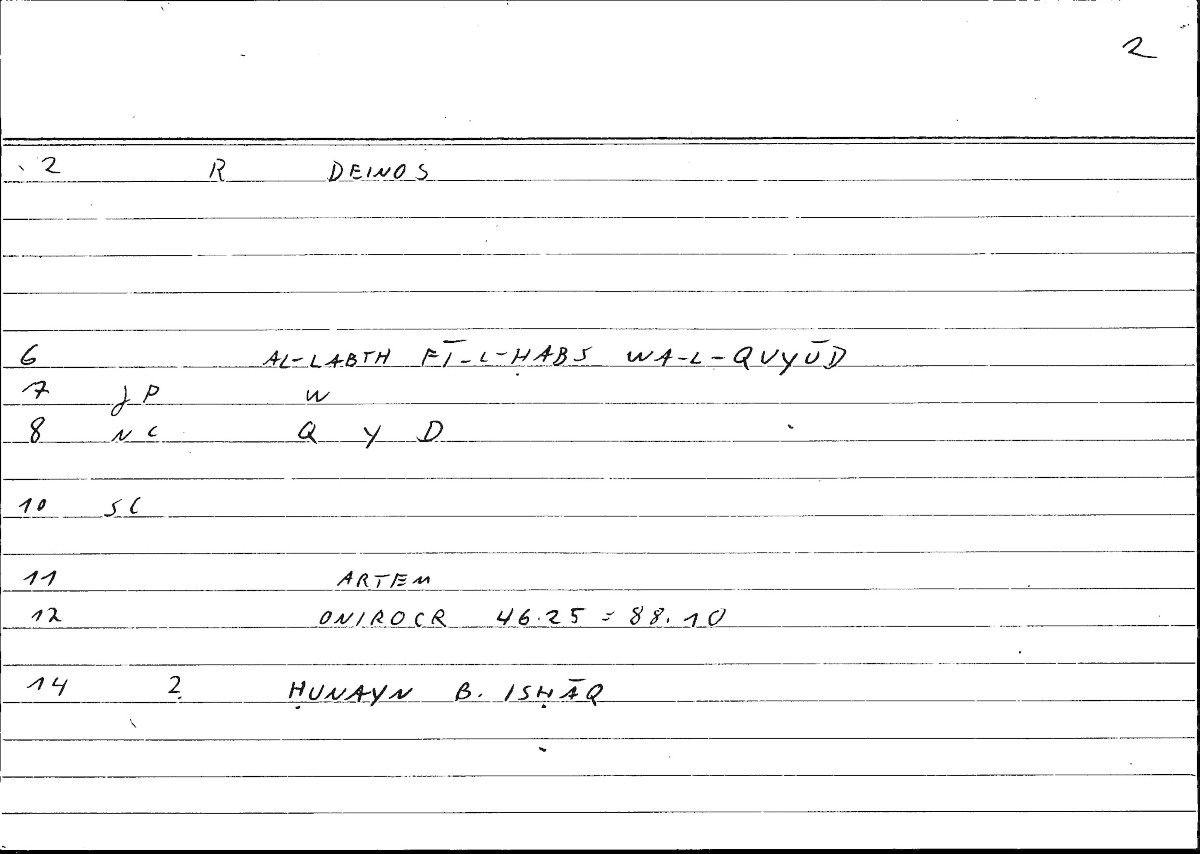 2
2 R DEINOS
6 AL-LABTH FĪ-L-ḤABS WA-L-QUYŪD
7 JP W
8 NC Q Y D
10 SC
11 ARTEM
12 ONIROCR 46.25 = 88.10
14 2 ḤUNAYN B. ISḤĀQ